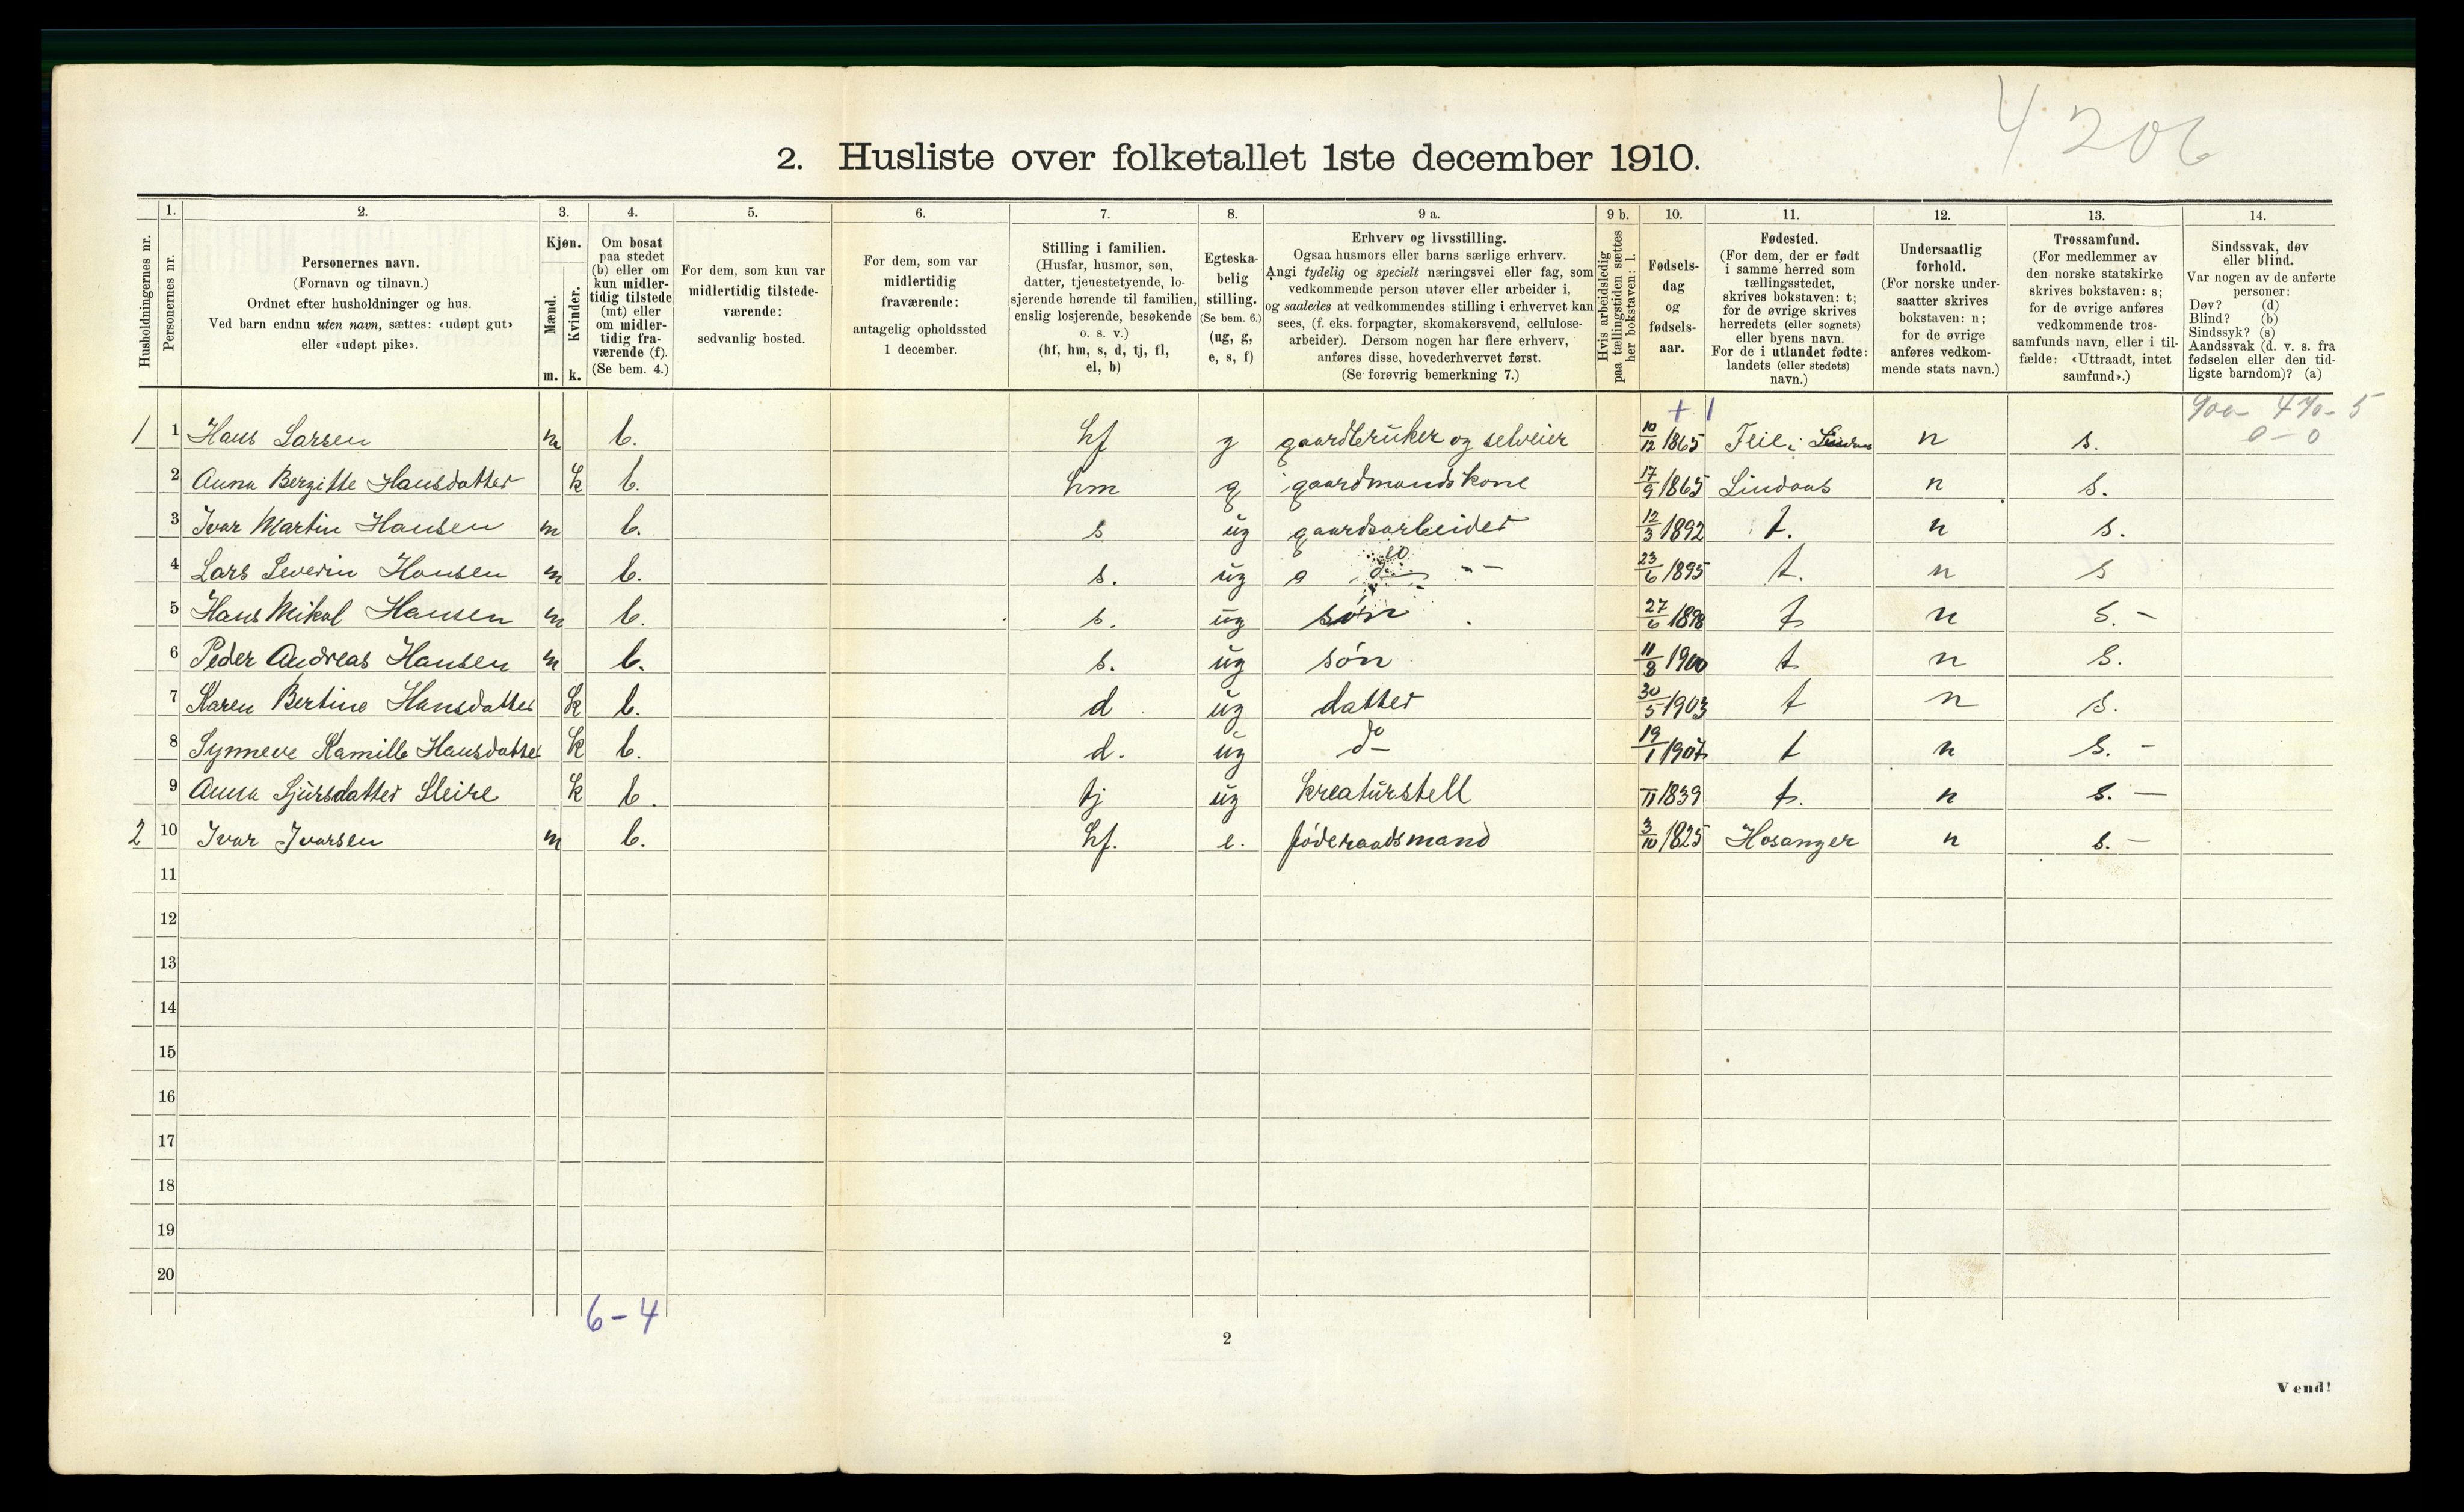 4 206
2. Husliste over folketallet 1ste december 1910.
Husholdningernes nr.
1. Personernes nr.
2. Personernes navn.
(Fornavn og tilnavn.)
Ordnet efter husholdninger og hus.
Ved barn endnu uten navn, sættes: «udøpt gut»
eller «udøpt pike».
3. Kjøn.
Mænd. m.
Kvinder. k.
4. Om bosat
paa stedet
(b) eller om
kun midler-
tidig tilstede
(mt) eller
om midler-
tidig fra-
værende (f).
(Se bem. 4.)
5. For dem, som kun var
midlertidig tilstede-
værende:
sedvanlig bosted.
6. For dem, som var
midlertidig
fraværende:
antagelig opholdssted
1 december.
7. Stilling i familien.
(Husfar, husmor, søn,
datter, tjenestetyende, lo-
sjerende hørende til familien,
enslig losjerende, besøkende
o. s. v.)
(hf, hm, s, d, tj, fl,
el, b)
8. Egteska-
belig
stilling.
(Se bem. 6.)
(ug, g,
e, s, f)
9 a. Erhverv og livsstilling.
Ogsaa husmors eller barns særlige erhverv.
Angi tydelig og specielt næringsvei eller fag, som
vedkommende person utøver eller arbeider i,
og saaledes at vedkommendes stilling i erhvervet kan
sees, (f. eks. forpagter, skomakersvend, cellulose-
arbeider). Dersom nogen har flere erhverv,
anføres disse, hovederhvervet først.
(Se forøvrig bemerkning 7.)
9 b. Hvis arbeidsledig
paa tællingstiden sættes
her bokstaven: l.
10. Fødsels-
dag
og
fødsels-
aar.
11. Fødested.
(For dem, der er født
i samme herred som
tællingsstedet,
skrives bokstaven: t;
for de øvrige skrives
herredets (eller sognets)
eller byens navn.
For de i utlandet fødte:
landets (eller stedets)
navn.)
12. Undersaatlig
forhold.
(For norske under-
saatter skrives
bokstaven: n;
for de øvrige
anføres vedkom-
mende stats navn.)
13. Trossamfund.
(For medlemmer av
den norske statskirke
skrives bokstaven: s;
for de øvrige anføres
vedkommende tros-
samfunds navn, eller i til-
fælde: «Uttraadt, intet
samfund».)
14. Sindssvak, døv
eller blind.
Var nogen av de anførte
personer:
Døv? (d)
Blind? (b)
Sindssyk? (s)
Aandssvak (d. v. s. fra
fødselen eller den tid-
ligste barndom)? (a)
+ 1
0 - 0
1 1 Hans Larsen m b. hf g gaardbruker og selveier 10/12 1865 Feie i Lindaas n s.
2 Anna Bergitte Hansdatter k b. hm g gaardmandskone 17/9 1865 Lindaas n s.
3 Ivar Martin Hansen m b. s ug gaardsarbeider 12/3 1892 t. n s.
4 Lars Severin Hansen m b. s. ug do 23/6 1895 t. n s
5 Hans Mikal Hansen m b. s. ug søn 27/6 1898 t n s. -
6 Peder Andreas Hansen m b. s. ug søn 11/8 1900 t n s.
7 Karen Bertine Hansdatter k b. d ug datter 30/5 1903 t n s.
8 Synneve Kamille Hansdatter k b. d. ug do 19/1 1907 t n s. -
9 Anna Sjursdatter Sleire k b. tj ug kreaturstell 11 1839 t. n s. -
2 10 Ivar Ivarsen m b. hf. e. føderaadsmand 3/10 1825 Hosanger n s. -
11
12
13
14
15
16
17
18
19
20
6 - 4
2
Vend!